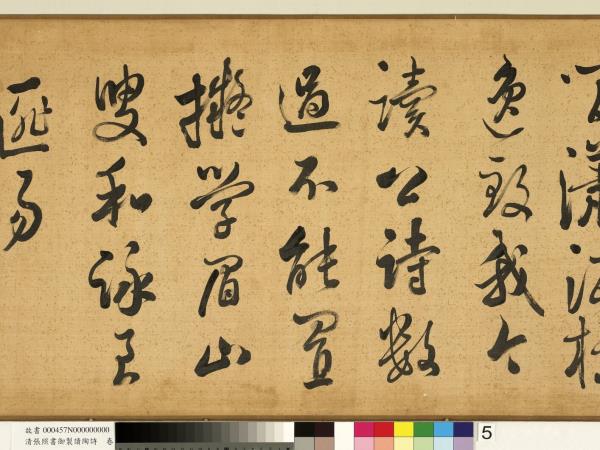 瀟洒
逸致我今
讀公詩數
過不能置
擬學眉山
叟和詠良
匪易
故書 000457N000000000
清張照書御製讀陶詩
5